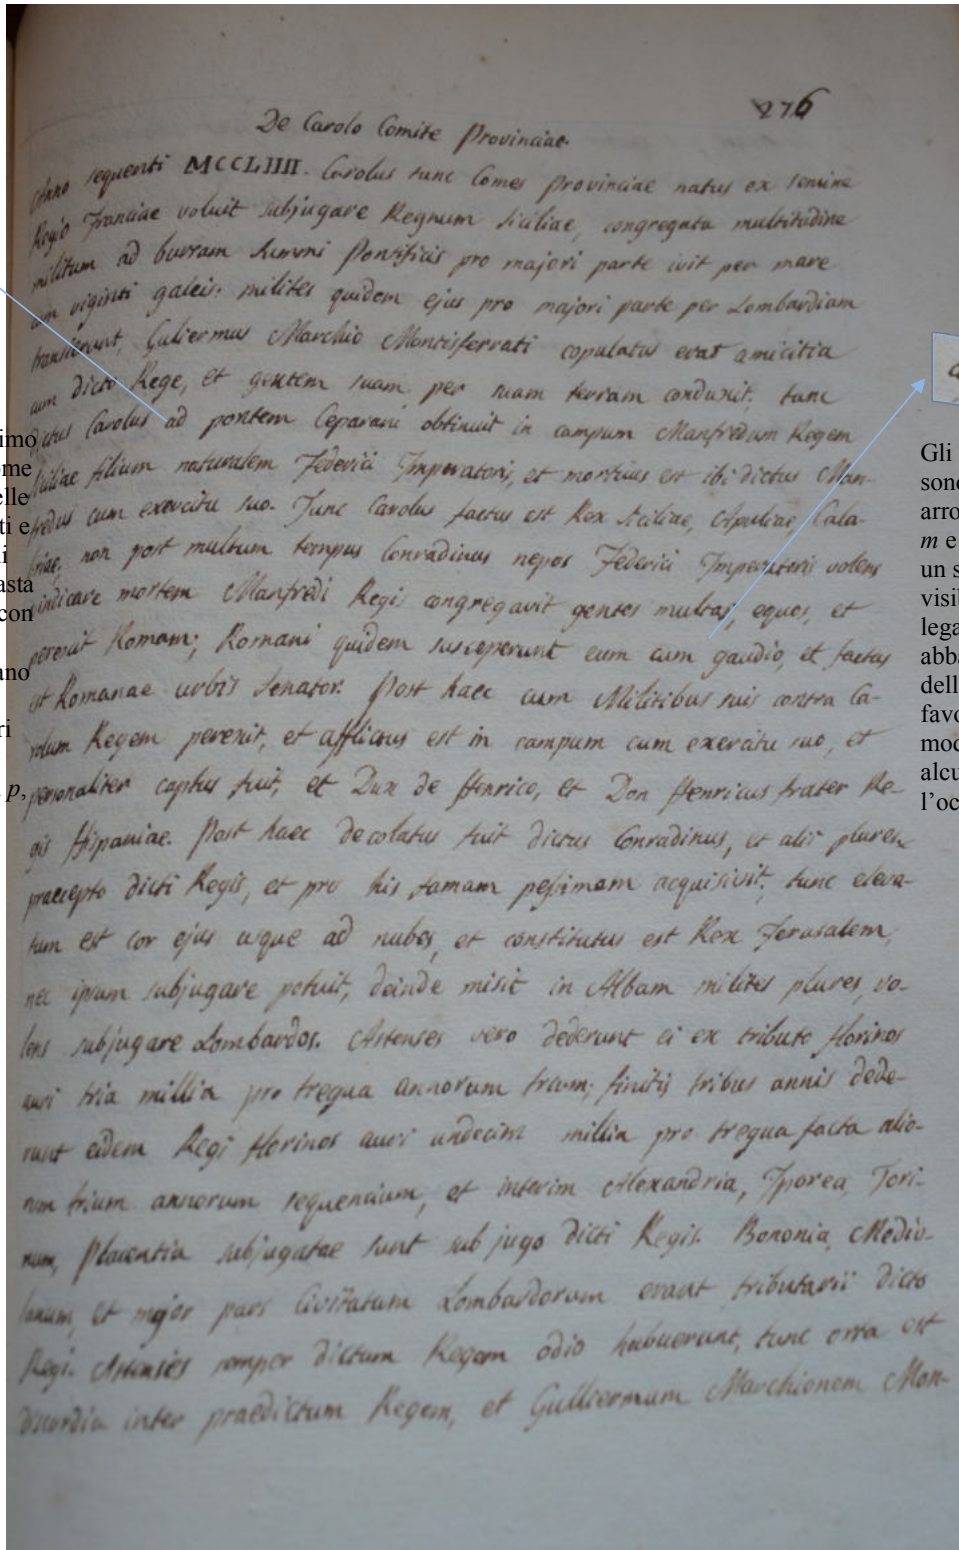 276
De Carolo Comite Provinciae.
Anno sequenti MCCLIIII. Carolus tunc Comes Provinciae natus ex semine
Regio Franciae voluit subjugare Regnum Siciliae, congregata multitudine
militum ad bursam Summi Pontificis pro majori parte ivit per mare
cum viginti galeis: milites quidem ejus pro majori parte per Lombardiam
transierunt, Guliermus Marchio Montisferrati copulatus erat amicitia
cum dicto Rege, et gentem suam per suam terram conduxit, tunc
dictus Carolus ad pontem Ceparani obtinuit in campum Manfredum Regem
Siciliae filium naturalem Federici Imperatoris, et mortuus est ibi dictus Man-
fredus cum exercitu suo. Tunc Carolus factus est Rex Siciliae, Apuliae, Cala-
briae. non post multum tempus Conradinus nepos Federici Imperatoris volens
vindicare mortem Manfredi Regis congregavit gentes multas, eques, et
perexit Romam; Romani quidem susceperunt eum cum gaudio, et factus
est Romanae urbis Senator. Post haec cum Militibus suis contra Ca-
rolum Regem perexit, et afflictus est in campum cum exercitu suo, et
personaliter captus fuit, et Dux de Henrico, et Don Henricus frater Re-
gis Hispaniae. Post haec decolatus fuit dictus Conradinus, et alii plures
praecepto dicti Regis, et pro his famam pessimam acquisivit, tunc eleva-
tum est cor ejus usque ad nubes, et constitutus est Rex Jerusalem,
nec ipsum subjugare potuit, deinde misit in Albam milites plures, vo-
lens subjugare Lombardos. Astenses vero dederunt ei ex tributo florinos
auri tria millia pro tregua annorum trium; finitis tribus annis dede-
runt eidem Regi florinos auri undecim millia pro tregua facta alio-
rum trium annorum sequentium, et interim Alexandria, Iporea, Tori-
num, Placentia subjugatae sunt sub jugo dicti Regis. Bononia, Medio-
lanum, et major pars Civitatum Lombardorum erant tributarii dicto
Regi. Astenses semper dictum Regem odio habuerunt, tunc orta est
discordia inter praedictum Regem, et Gulliermum Marchionem Mon-
imo
ome
elle
ti e
i
asta
con
ano
ri
p,
Gli
sono
arro
m e
un s
visib
lega
abba
dell
favo
mod
alcu
l'oc